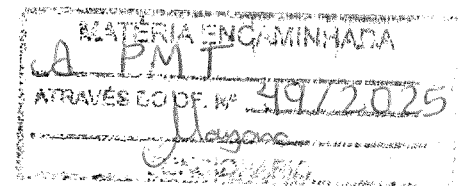 MATÉRIA ENCAMINHADA
A PMT
ATRAVÉS DO OF. Nº 49/2025